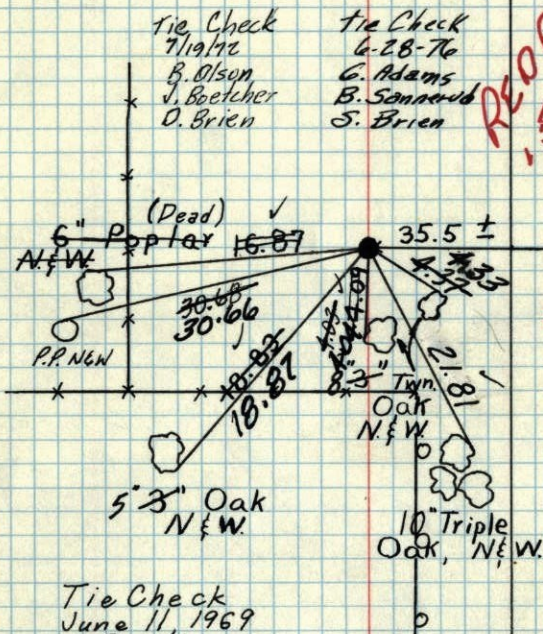 Tie Check
7/19/72
R. Olson
J. Boetcher
D. Brien
Tie Check
6-28-76
G. Adams
B. Sannerud
S. Brien
(Dead)
6" Poplar
N.&W.
16.87
35.5 ±
4.33
30.68
30.66
P.P. N&W
18.83
18.87
4.03
4.09
21.81
8" 3" Twn.
Oak
N.&W.
5" 3" Oak
N.&W.
10" Triple
Oak, N.&W.
Tie Check
June 11, 1969